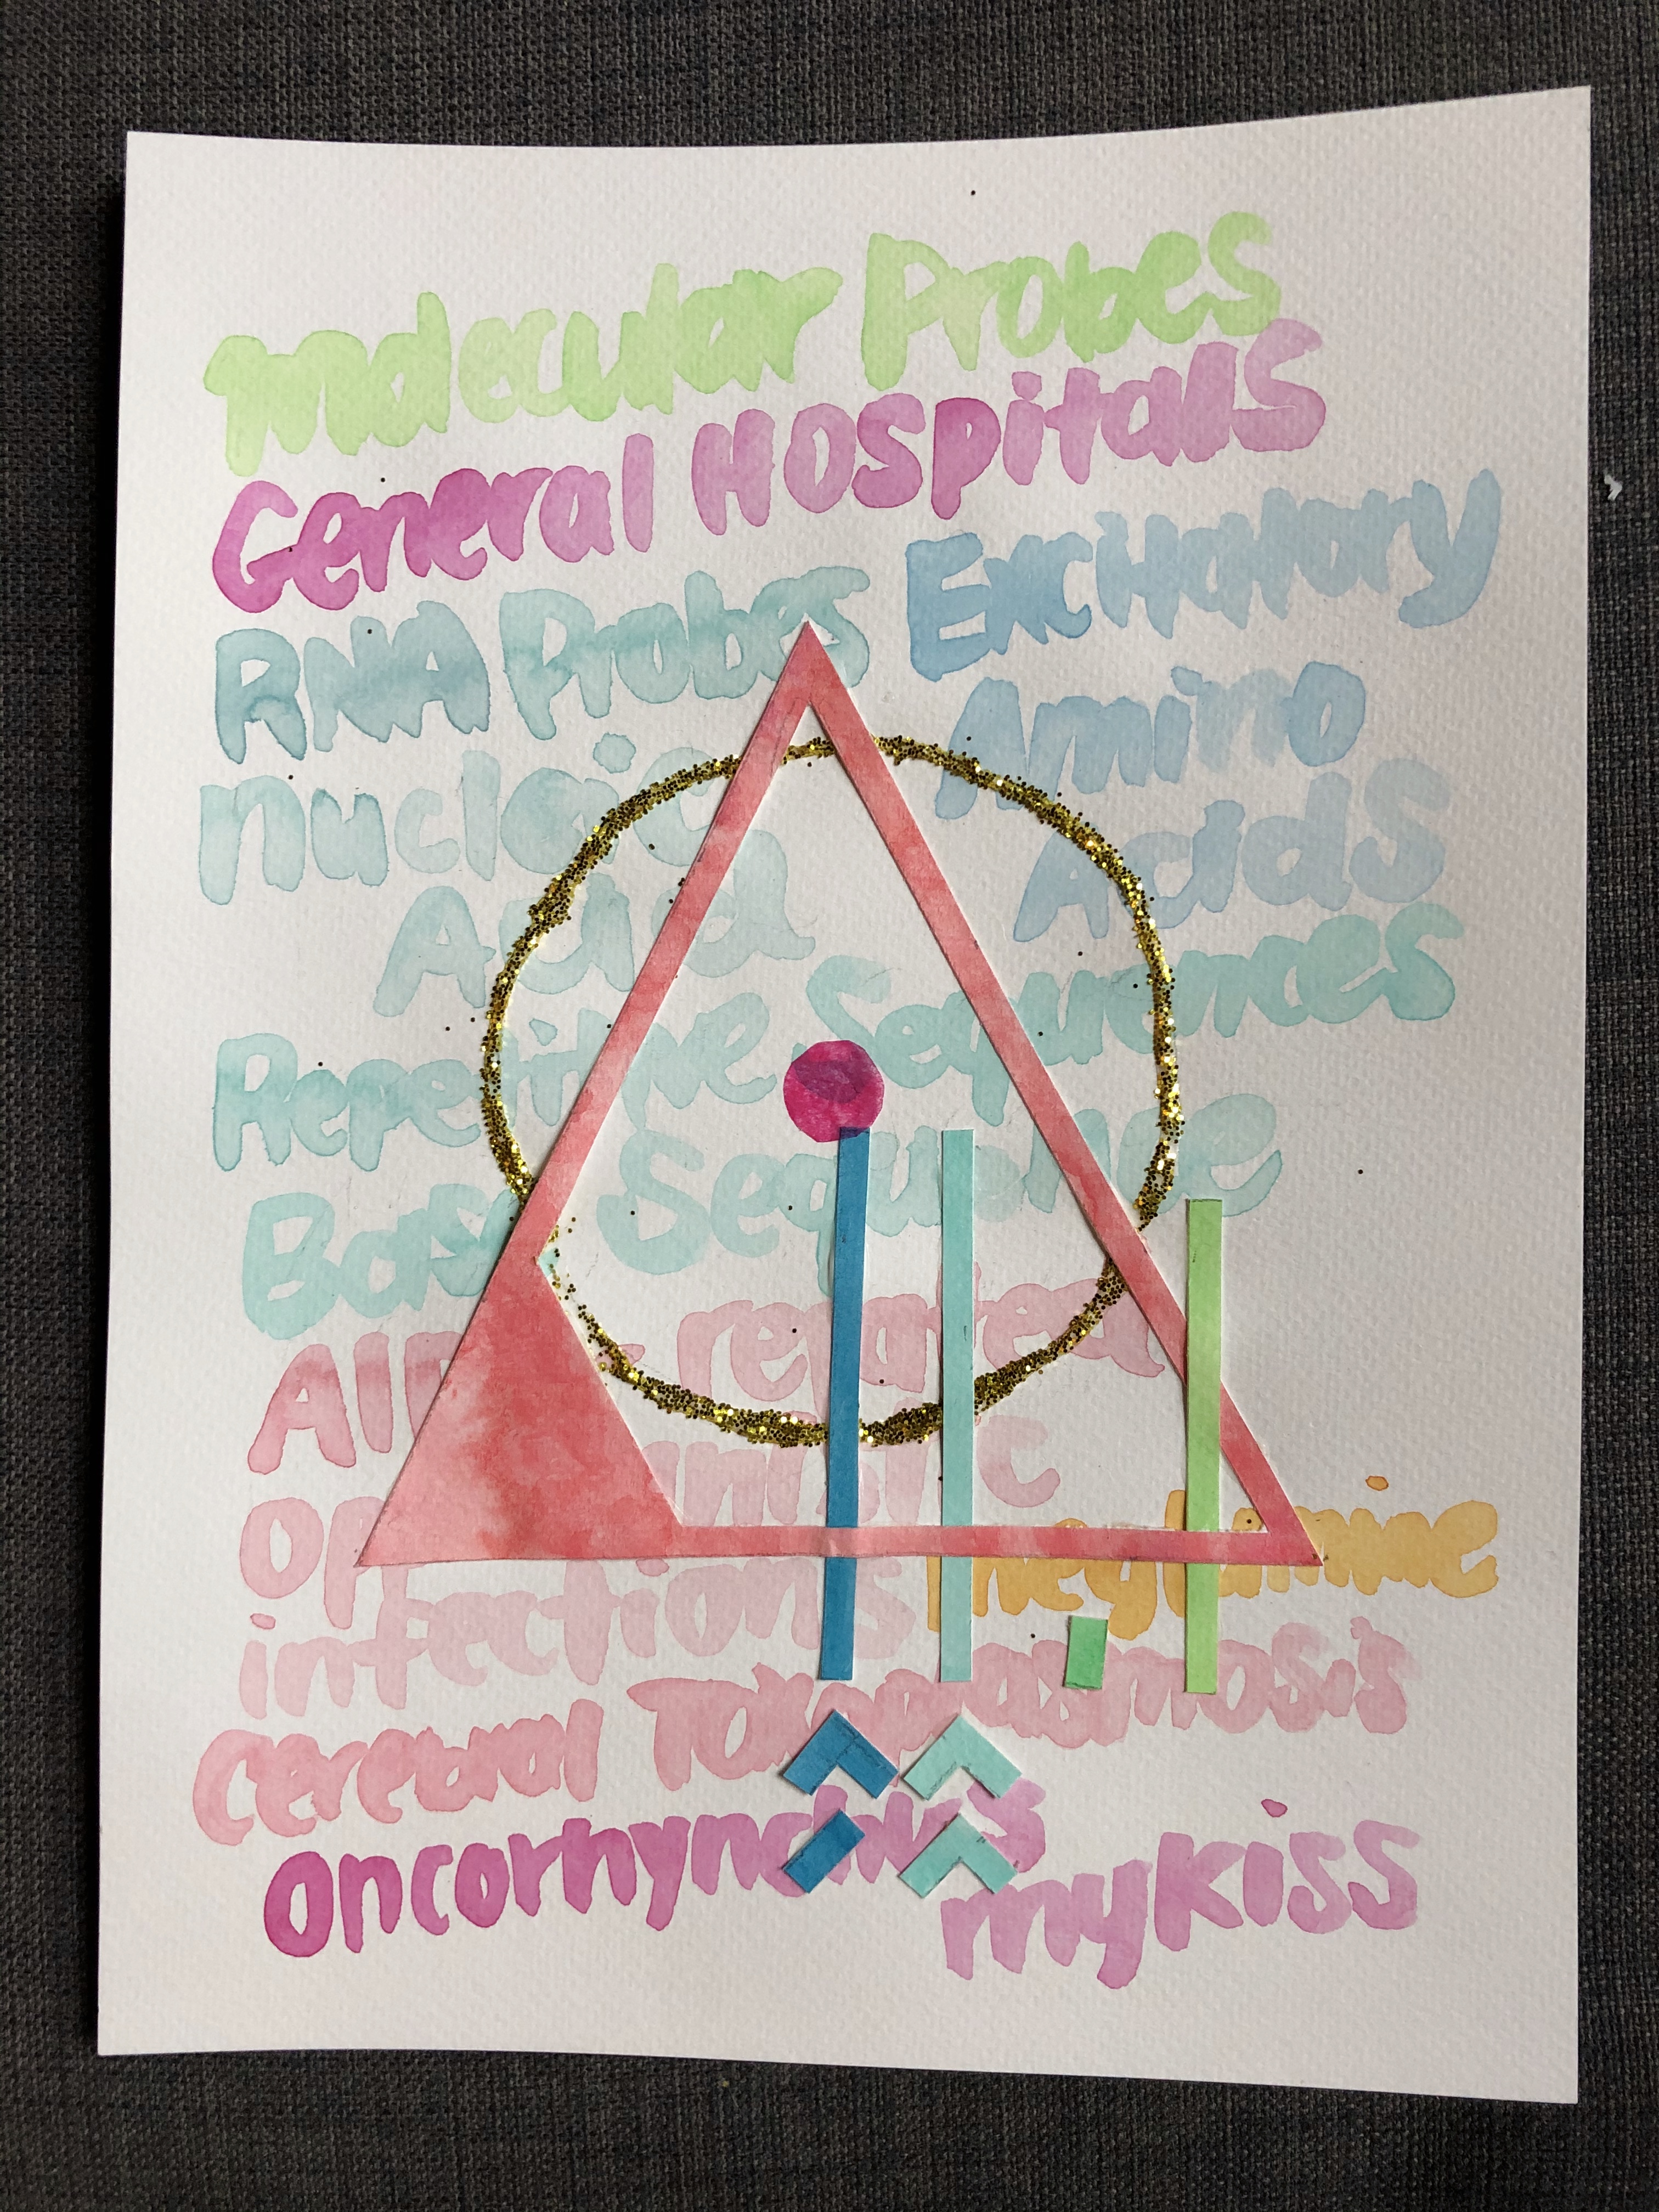 Molecular Probes
General Hospitals
RNA Probes
Nucleic
Acid
Excitatory
Amino
Acids
Repetitive Sequences
Base Sequence
related
infections
Meglumine
Cerebral Toxoplasmosis
Oncorhynchus
mykiss